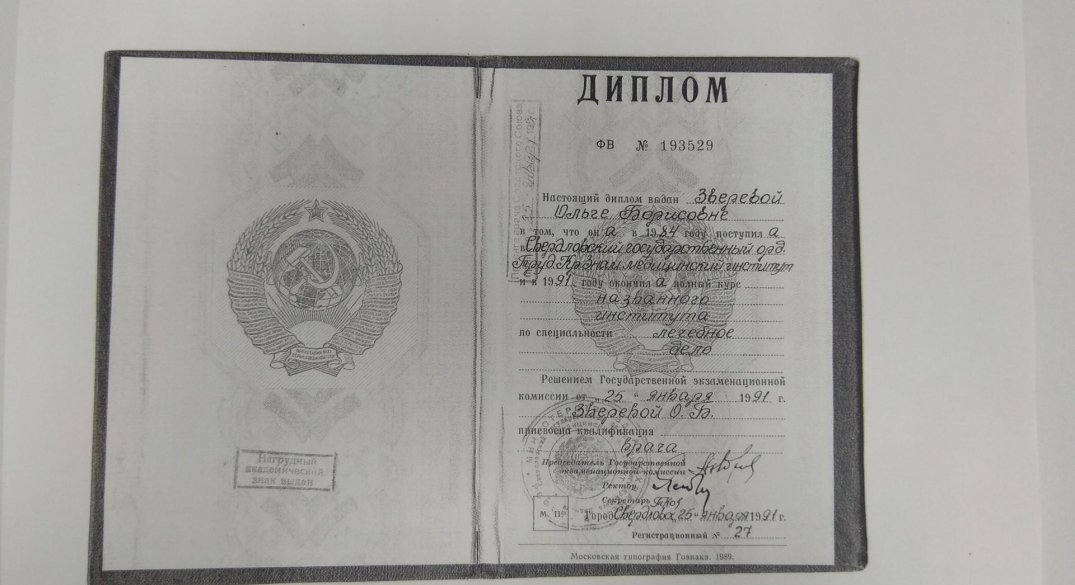 Нагрудный
академический
знак выдан
ДИПЛОМ
ФВ № 193529
Настоящий диплом выдан Зверевой
Ольге Борисовне
в том, что он а в 1984 году поступил а
в Свердловский государственный орд.
Труд. Кр. Знам. медицинский институт
и в 1991 году окончил а полный курс
названного
института
по специальности лечебное
дело
Решением Государственной экзаменационной
комиссии от „25“ января 1991 г.
Зверевой О. Б.
присвоена квалификация
врача
Председатель Государственной
экзаменационной комиссии
Ректор
Секретарь
М. П. Город 25 января 1991 г.
Регистрационный № 27
Московская типография Гознака. 1989.